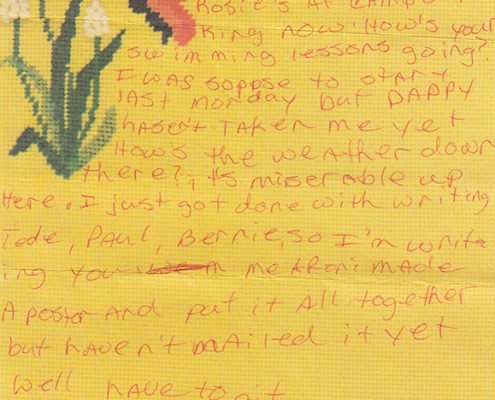 Rosie's AT CAMP
King now. How's your
swimming lessons going?
I was soppose to start
last monday but DADDY
hasen't TAKen me yet
How's the weather down
there?, it's miserable up
Here. I just got done with writing
Tede, PAUL, Bernie, so I'm write
ing you me & Roni made
A poster AND put it All together
but haven't mailed it yet
Well have to